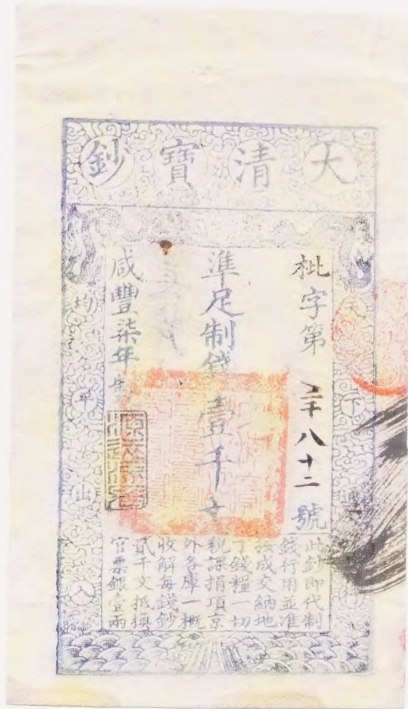 大清寶鈔
天下
枇字第二千八十二號
準足制錢壹千文
咸豐柒年
均平出入
此鈔即代制
錢行用並准
按成交納地
丁錢糧一切
稅課捐項京
外各庫一概
收解每錢鈔
貳千文抵換
官票銀壹兩